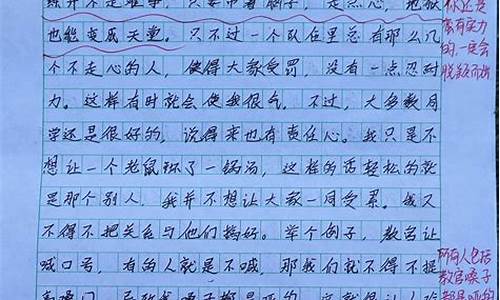 练并不是难事，只要带着脑子，走点心，地狱
也能变成天堂。只不过一个队伍里总有那么几
个不走心的人，使得大家受罚，没有一点忍耐
力。这样有时就会使我很气。不过，大多数同
学还是很好的，说得来也有责任心。我只是不
想让一个老鼠坏了一锅汤，这样的话轻松的就
是那个别人，我并不想让大家一同受累。我又
不得不把关系与他们搞好。举个例子，教官让
喊口号，有的人就是不喊，那我们就不得不提
你还是
蛮有实力
的，一定会
脱颖而出
所有人包括
教官嗓子